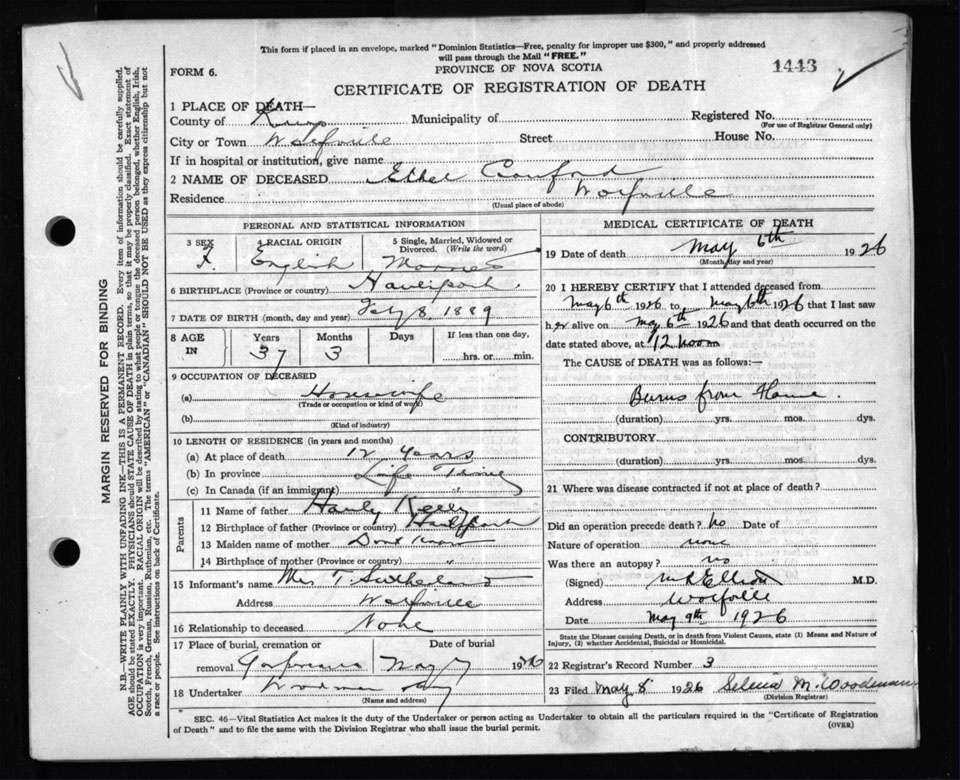 This form if placed in an envelope, marked "Dominion Statistics—Free, penalty for improper use $300," and properly addressed
will pass through the Mail "FREE."
PROVINCE OF NOVA SCOTIA
1443
FORM 6.
CERTIFICATE OF REGISTRATION OF DEATH
1 PLACE OF DEATH—
County of Kings Municipality of Registered No.
(For use of Registrar General only)
City or Town Wolfville Street House No.
If in hospital or institution, give name
2 NAME OF DECEASED Ethel Crawford
Residence Wolfville
(Usual place of abode)
PERSONAL AND STATISTICAL INFORMATION
3 SEX 4 RACIAL ORIGIN 5 Single, Married, Widowed or Divorced. (Write the word)
F. English Married
6 BIRTHPLACE (Province or country) Hantsport
7 DATE OF BIRTH (month, day and year) Feb 8, 1889
8 AGE IN Years Months Days If less than one day,
37 3 hrs. or min.
9 OCCUPATION OF DECEASED
(a) Housewife
(Trade or occupation or kind of work)
(b)
(Kind of industry)
10 LENGTH OF RESIDENCE (in years and months)
(a) At place of death 12 years
(b) In province Life Time
(c) In Canada (if an immigrant) "
Parents
11 Name of father Kelly
12 Birthplace of father (Province or country) Hantsport
13 Maiden name of mother Dont Know
14 Birthplace of mother (Province or country) "
15 Informant's name Mrs T. Sutherland
Address Wolfville
16 Relationship to deceased None
17 Place of burial, cremation or removal Date of burial
May 7 1926
18 Undertaker Woodman
(Name and address)
MEDICAL CERTIFICATE OF DEATH
19 Date of death May 6th 1926
(Month, day and year)
20 I HEREBY CERTIFY that I attended deceased from
May 6th 1926 to May 6th 1926 that I last saw
her alive on May 6th 1926 and that death occurred on the
date stated above, at 12 noon
The CAUSE of DEATH was as follows:—
Burns from Flame.
(duration) yrs. mos. dys.
CONTRIBUTORY
(duration) yrs. mos. dys.
21 Where was disease contracted if not at place of death?
Did an operation precede death? No Date of
Nature of operation none
Was there an autopsy? no
(Signed) Elliott M.D.
Address Wolfville
Date May 9th 1926
State the Disease causing Death, or in death from Violent Causes, state (1) Means and Nature of
Injury, (2) whether Accidental, Suicidal or Homicidal.
22 Registrar's Record Number 3
23 Filed May 8 1926 Selena M. Woodman
(Division Registrar)
SEC. 46—Vital Statistics Act makes it the duty of the Undertaker or person acting as Undertaker to obtain all the particulars required in the "Certificate of Registration
of Death" and to file the same with the Division Registrar who shall issue the burial permit.
(OVER)
MARGIN RESERVED FOR BINDING
N.B.—WRITE PLAINLY, WITH UNFADING INK—THIS IS A PERMANENT RECORD. Every item of information should be carefully supplied.
AGE should be stated EXACTLY. PHYSICIANS should STATE CAUSE OF DEATH in plain terms, so that it may be properly classified. Exact statement of
OCCUPATION is very important. RACIAL ORIGIN will be described by stating to what people or tongue the deceased person belonged, whether English, Irish,
Scotch, French, German, Russian, Ruthenian, etc. The terms "AMERICAN" or "CANADIAN" SHOULD NOT BE USED as they express citizenship but not
a race or people. See instructions on back of Certificate.